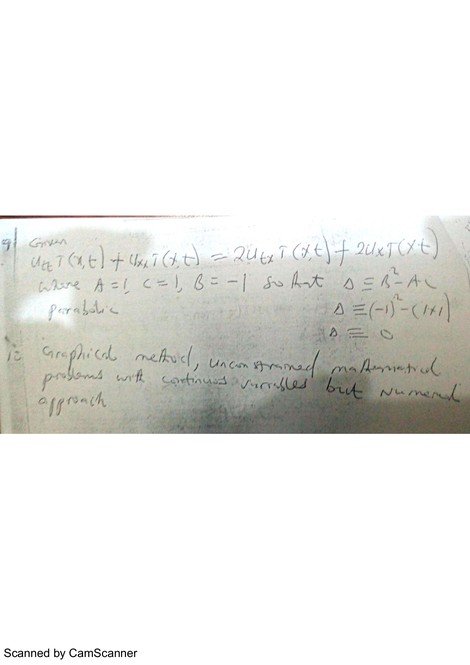 9) Given
Utt T(x,t) + Uxx T(x,t) = 2Utx T(x,t) + 2Ux T(x t)
where A=1, C=1, B=-1 so that Δ ≡ B²-AC
parabolic Δ ≡ (-1)²-(1x1)
Δ ≡ 0
Graphical method, unconstrained mathematical
problems with continuous variables but Numerical
approach
Scanned by CamScanner